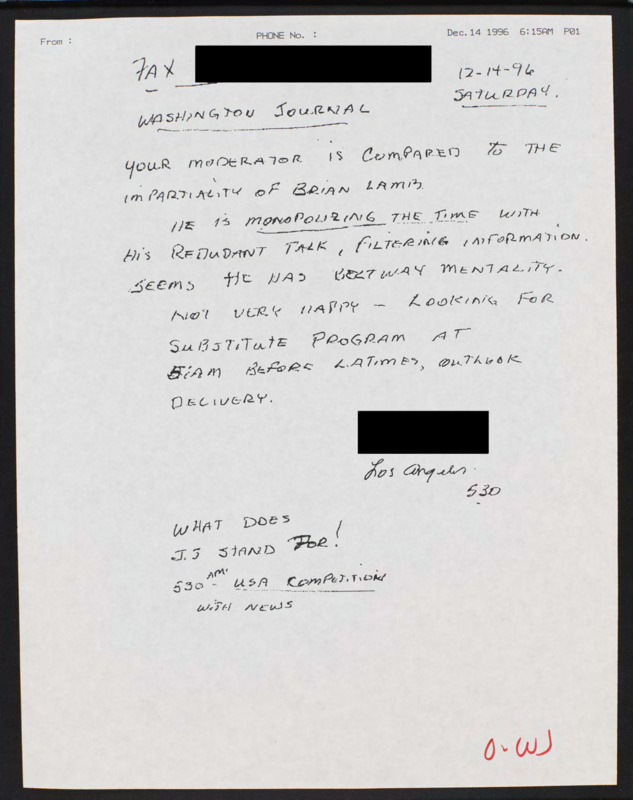 From :
PHONE No. :
Dec.14 1996 6:15AM P01
FAX
12-14-96
SATURDAY.
WASHINGTON JOURNAL
YOUR MODERATOR IS COMPARED TO THE
IMPARTIALITY OF BRIAN LAMB
HE IS MONOPOLIZING THE TIME WITH
HIS REDUDANT TALK, FILTERING INFORMATION.
SEEMS HE HAS BELTWAY MENTALITY.
NOT VERY HAPPY - LOOKING FOR
SUBSTITUTE PROGRAM AT
5AM BEFORE LATIMES, OUTLOOK
DELIVERY.
Los Angeles.
530
WHAT DOES
J.J STAND FOR!
530 AM - USA COMPETITION
WITH NEWS
O-WJ